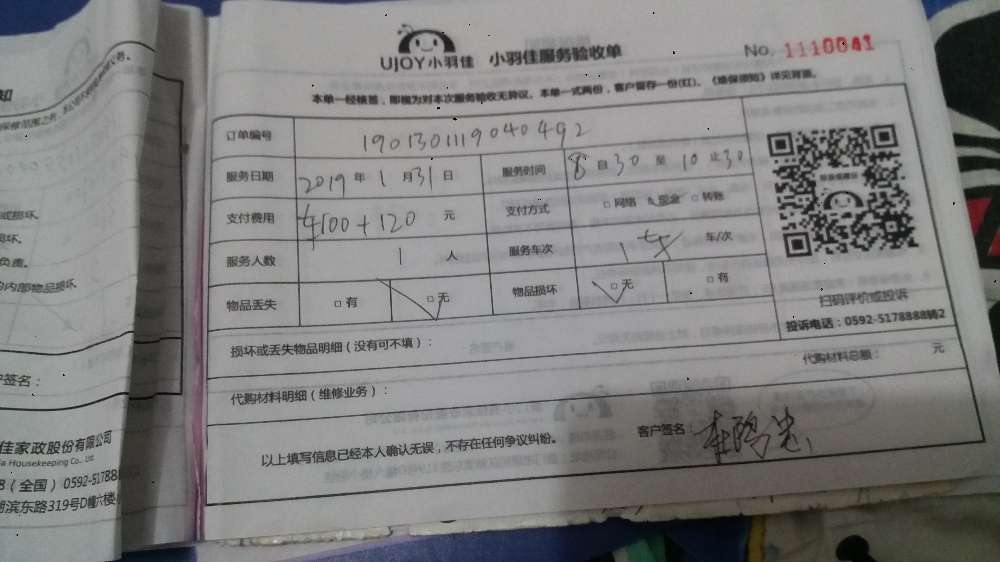 UJOY小羽佳 小羽佳服务验收单 No. 1110041
本单一经核签，即视为对本次服务验收无异议。本单一式两份，客户留存一份(红)。《维保须知》详见背面。
订单编号 1901301119040492
服务日期 2019年1月31日 服务时间 8自30至10止30
支付费用 400+120元 支付方式 □网络 □现金 □转账
服务人数 1人 服务车次 1 车/次
物品丢失 □有 □无 物品损坏 □无 □有
扫码评价或投诉
投诉电话：0592-5178888转2
损坏或丢失物品明细（没有可不填）：
代购材料明细（维修业务）： 代购材料总额： 元
以上填写信息已经本人确认无误，不存在任何争议纠纷。 客户签名：
知
或损坏。
损坏。
负责。
的内部物品损坏
户签名：
佳家政股份有限公司
ia Housekeeping Co., Ltd.
8（全国） 0592-5178888
湖滨东路319号D幢六楼